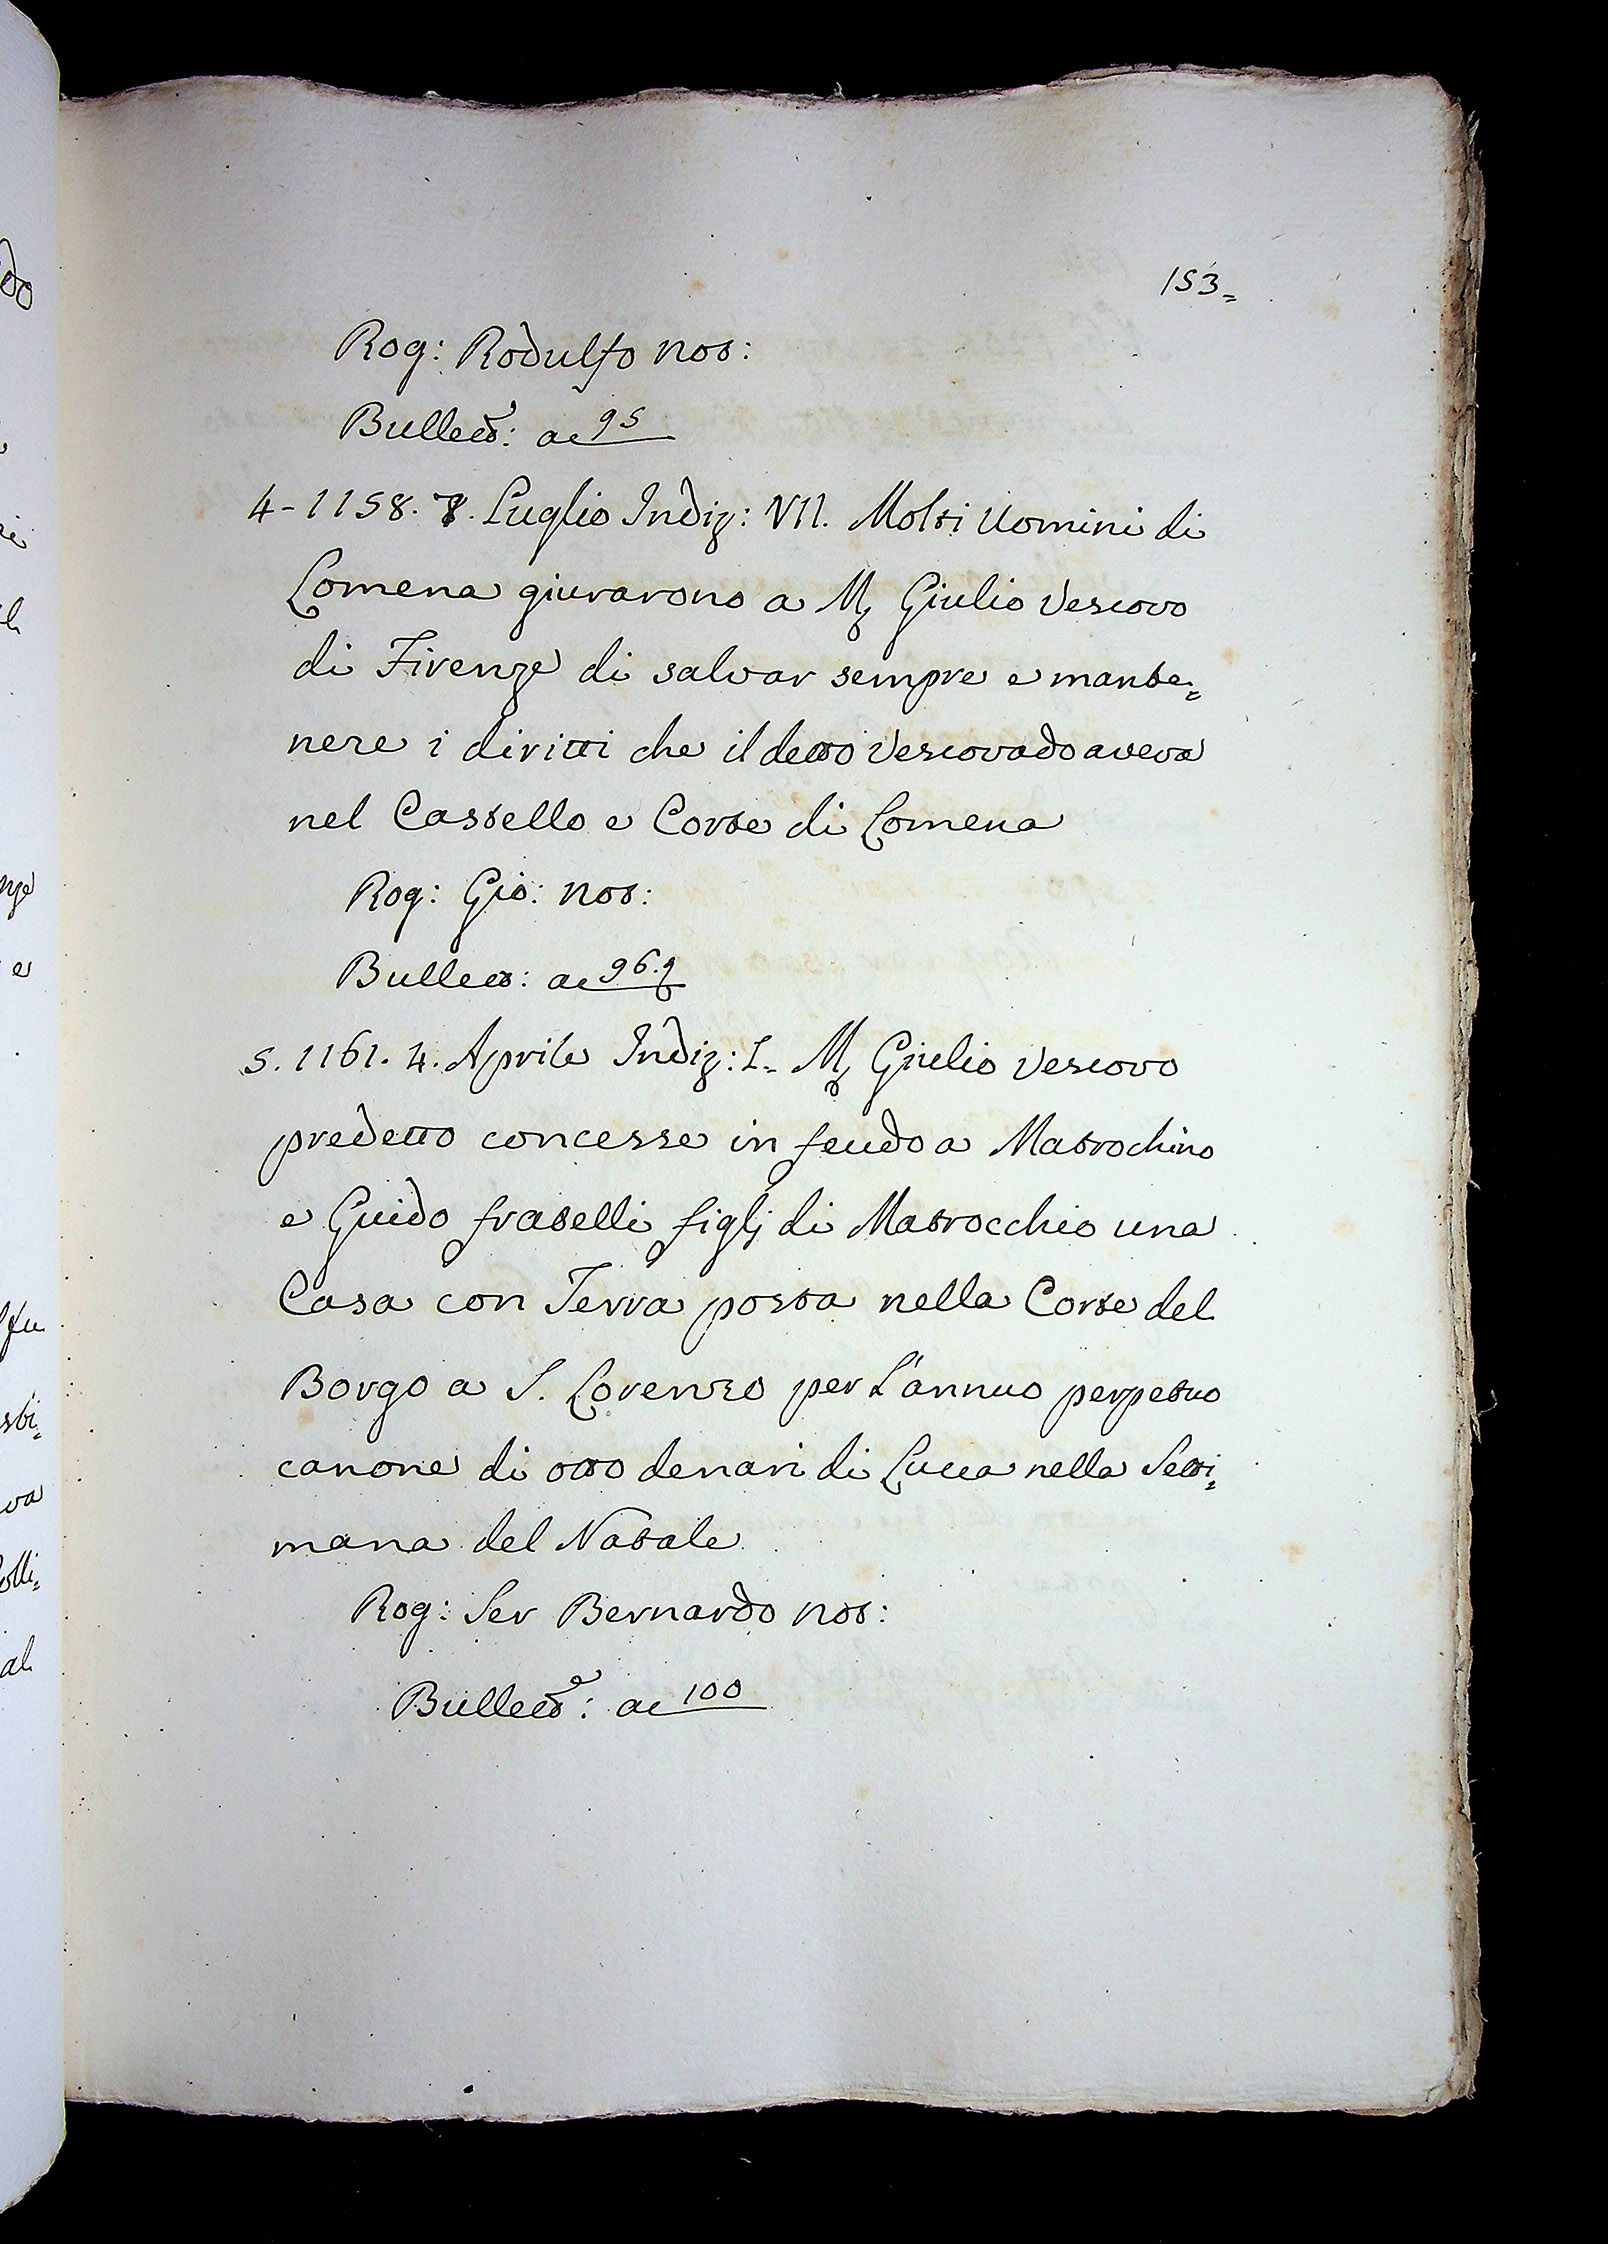 153=
Rog: Rodulfo not:
Bullett.e: ac 95
4-1158. 8. Luglio Indiz: VII. Molti Uomini di
Lomena giurarono a M Giulio Vescovo
di Firenze di salvar sempre e mante=
nere i diritti che il detto Vescovado aveva
nel Castello e Corte di Lomena
Rog: Gio: not:
Bullett: ac 96.
5. 1161. 4. Aprile Indiz: I. M Giulio Vescovo
predetto concesse in feudo a Matrochino
e Guido fratelli figlj di Matrocchio una
Casa con Terra posta nella Corte del
Borgo a S. Lorenzo per L'annuo perpetuo
canone di otto denari di Lucca nella Setti=
mana del Natale
Rog: Ser Bernardo not:
Bullett.e: ac 100